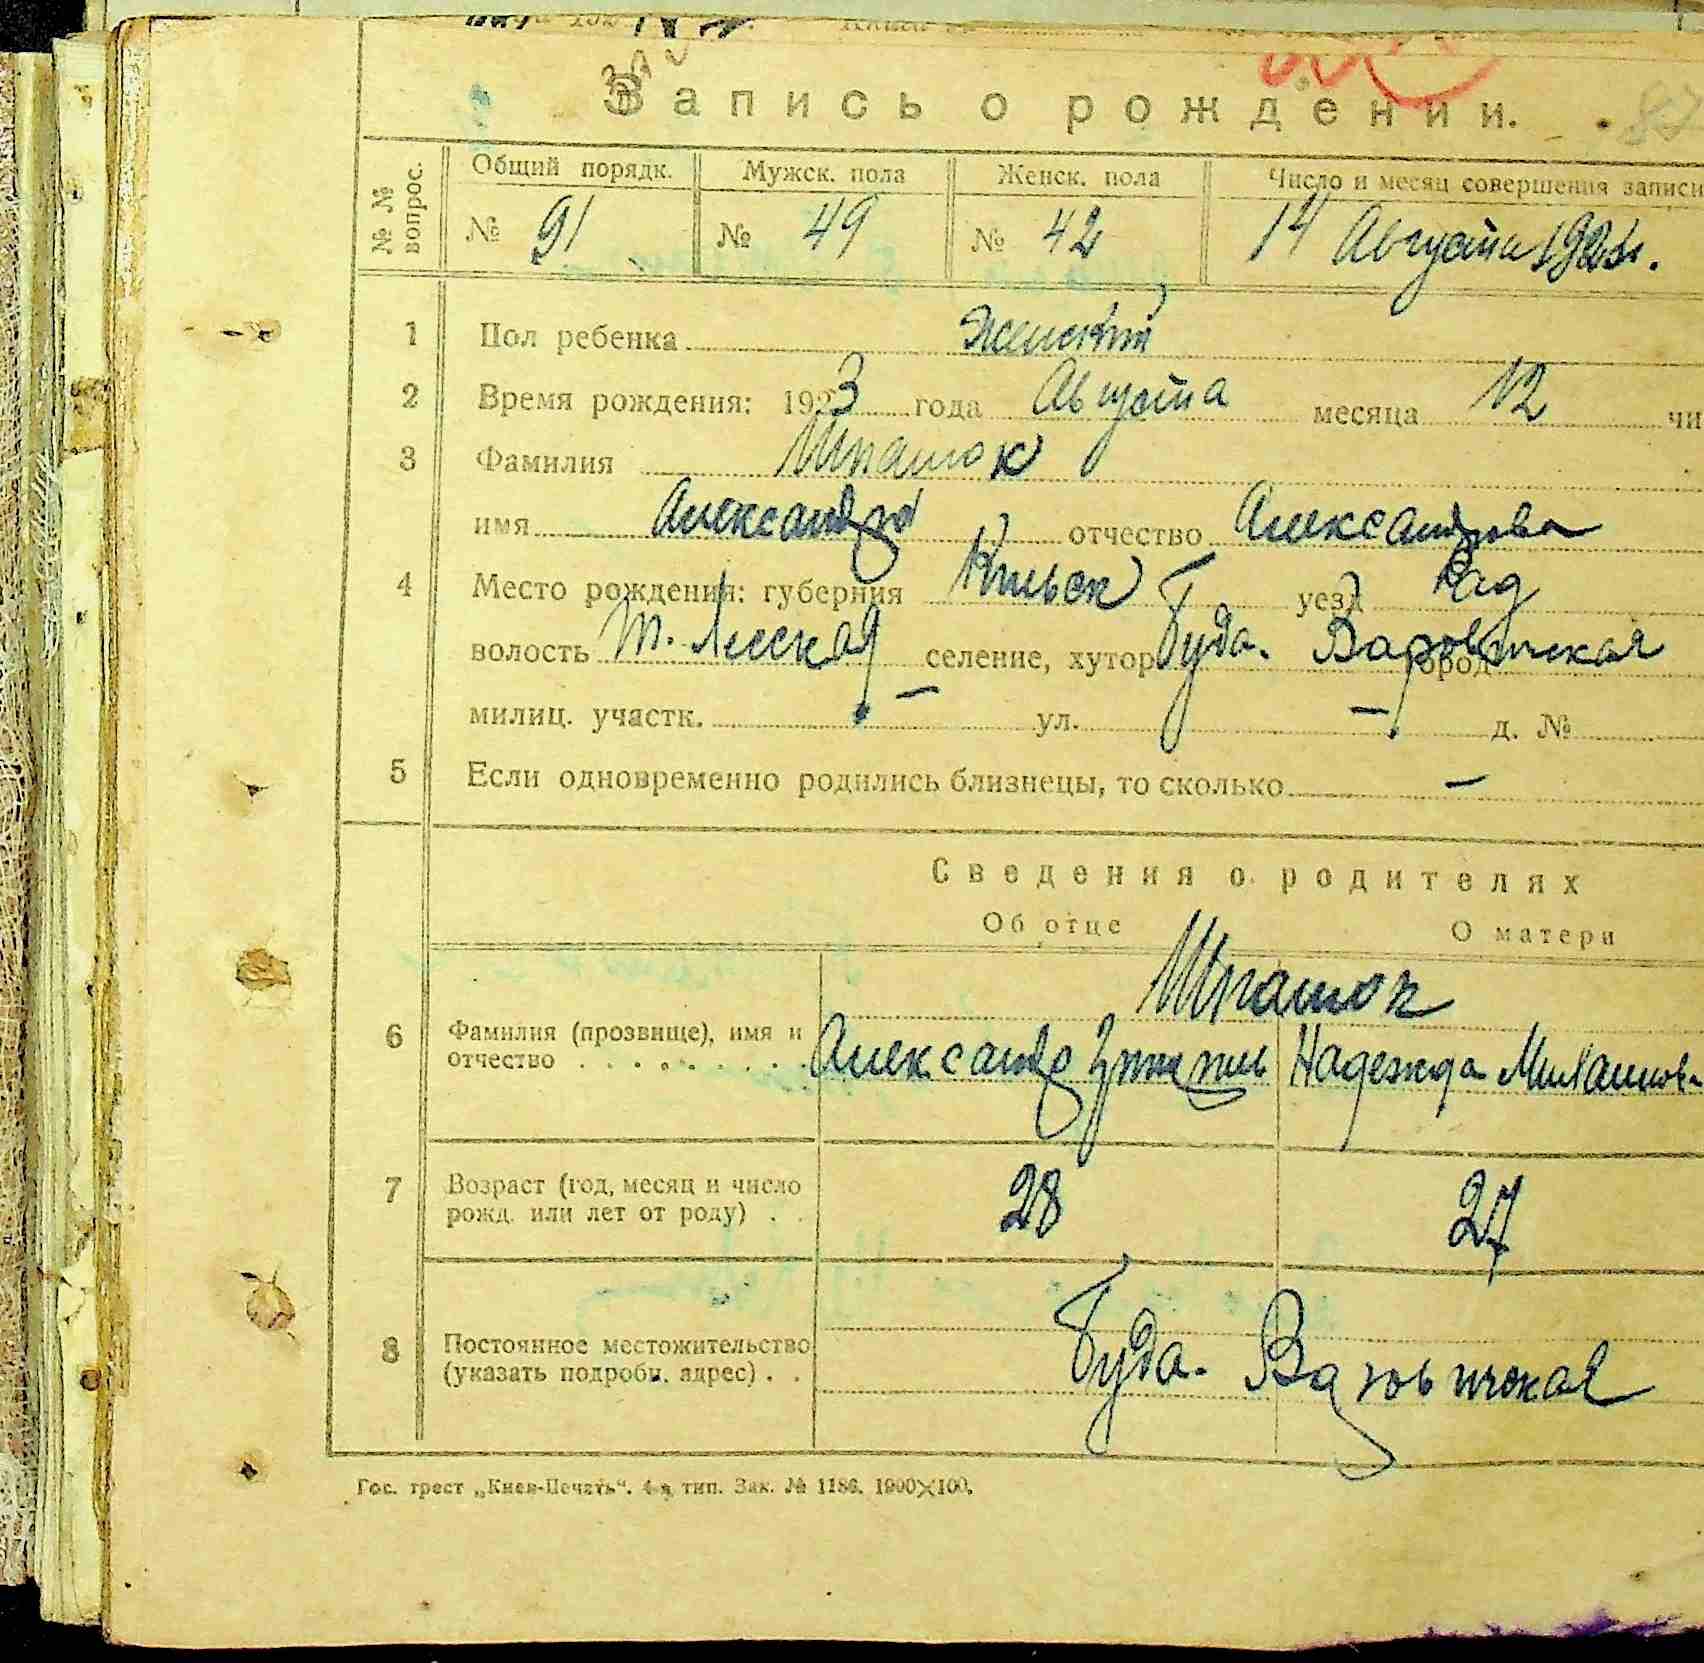 Запись о рождении.
№ № вопрос.
Общий порядк. Мужск. пола Женск. пола Число и месяц совершения записи
№ 91 № 49 № 42 14 Августа 1923г.
1 Пол ребенка Женский
2 Время рождения: 1923 года Августа месяца 12 чи
3 Фамилия Шпатюк
имя Александра отчество Александрова
4 Место рождения: губерния Киевск уезд Рад
волость М. Лесская селение, хутор Буда. Варовичская город
милиц. участк. — ул. — д. №
5 Если одновременно родились близнецы, то сколько —
Сведения о родителях
Об отце О матери
Шпатюк
6 Фамилия (прозвище), имя и отчество Александр Надежда
7 Возраст (год, месяц и число рожд. или лет от роду) 28 27
8 Постоянное местожительство (указать подробн. адрес) Буда. Варовичская
Гос. трест „Киев-Печать“. 4-я тип. Зак. № 1186. 1900×100.